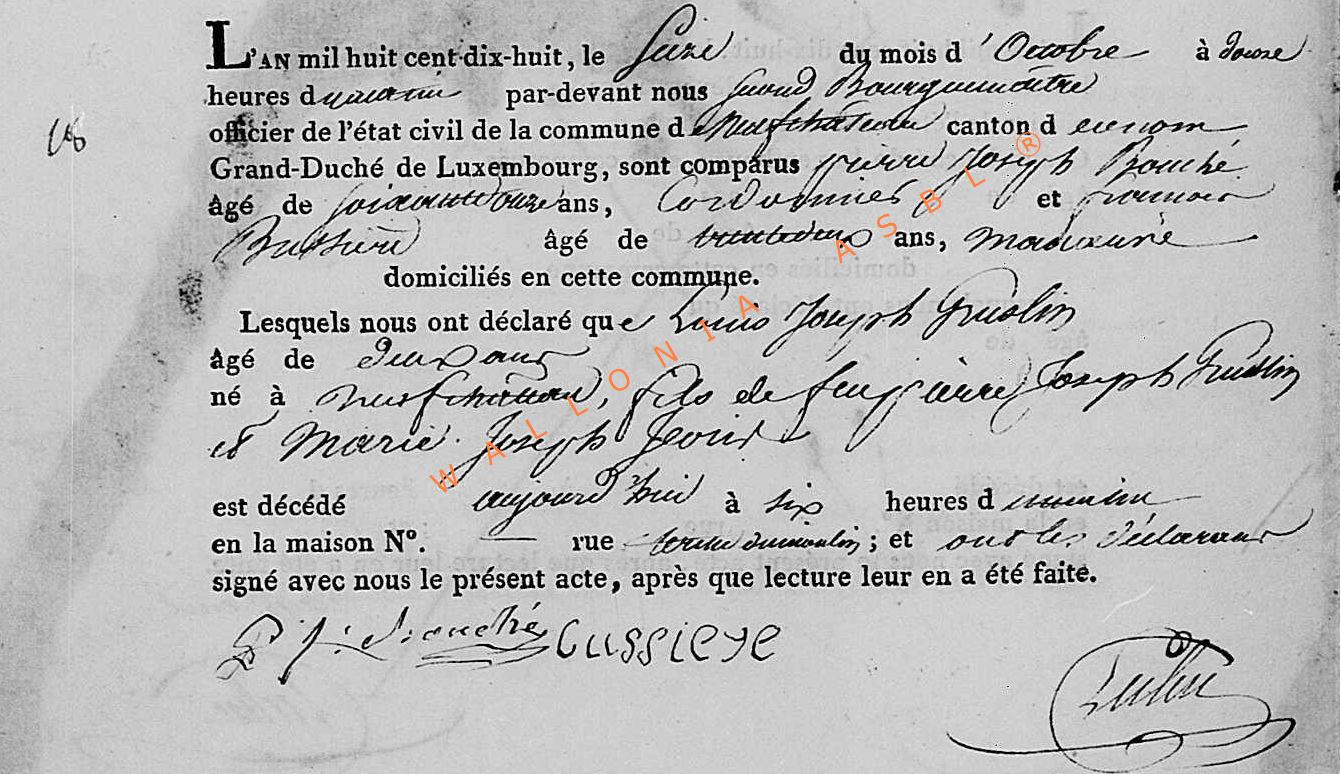 108
L'AN mil huit cent-dix-huit, le Seize du mois d'Octobre à douze
heures du matin par-devant nous Bourguemaitre
officier de l'état civil de la commune de Neufchateau canton d
Grand-Duché de Luxembourg, sont comparus pierre Joseph Bouché
âgé de soixante douze ans, Cordonnier et francois
Bussiere âgé de trente deux ans, manoeuvre
domiciliés en cette commune.
Lesquels nous ont déclaré que Louis Joseph Guislin
âgé de deux ans
né à Neufchateau, fils de feu pierre Joseph Guislin
et Marie Joseph
est décédé aujourd'hui à six heures du matin
en la maison N°. — rue dumoulin; et ont les déclarans
signé avec nous le présent acte, après que lecture leur en a été faite.
P j: bouché Bussiere
WALLONIA ASBL ®